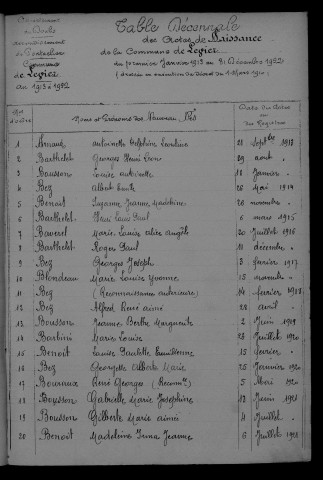 Département
du Doubs
arrondissement
de Pontarlier
Commune
de Légier
an 1913 à 1922
Table Décennale
des Actes de Naissance
de la Commune de Légier
du premier Janvier 1913 au 31 Décembre 1922
(dressée en exécution du décret du
Noms et Prénoms des Nouveau Nés
Date des Actes
au Registre
1 Arnaud Antoinette Delphine 21 Septbre 1913
2 Barthelet Georges Henri Léon 29 août
3 Bousson Louise Antoinette 18 Janvier
4 Bez Albert 26 Mai 1914
5 Benoit Suzanne Jeanne Madeleine 26 novembre
6 Barthelet Henri Louis Paul 6 mars 1915
7 Baverel Marie Louise Alice Angèle 20 Juillet 1916
8 Barthelet Roger Paul 11 décembre
9 Bez Georges Joseph 3 février 1917
10 Blondeau Marie Louise Yvonne 15 novembre
11 Bez (Reconnaissance antérieure) 14 février 1918
12 Bez Alfred René Aimé 28 avril
13 Bousson Jeanne Berthe Marguerite 2 Juin 1919
14 Bartini Marie Louise 23 Juillet 1920
15 Benoit Louise Paulette 15 février
16 Bez Georgette Alberte Marie 25 Janvier 1920
17 René Georges (Reconn) 5 Mai 1920
18 Bousson Gabrielle Marie Joséphine 13 Juin 1921
19 Bousson Gilberte Marie Aimée 4 Juillet
20 Benoit Madeleine Irma Jeanne 6 Juillet 1921